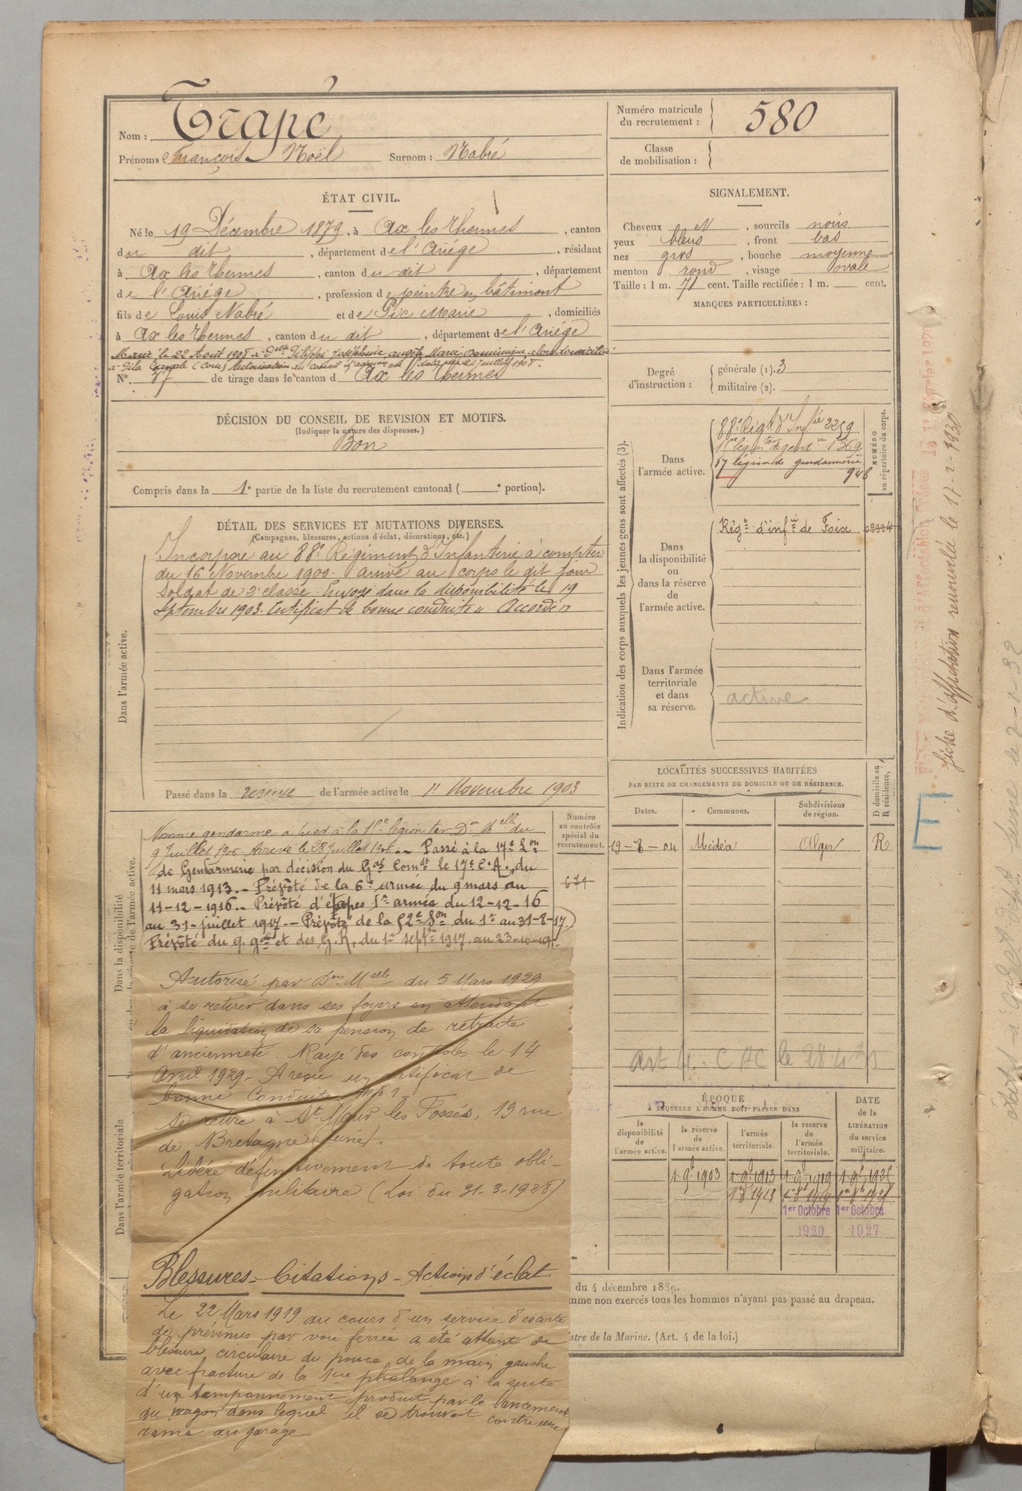 Nom : Trapé
Prénoms : François Noël Surnom : Nabré
Numéro matricule du recrutement : 580
Classe de mobilisation :
ÉTAT CIVIL.
Né le 19 Décembre 1879, à Ax les Thermes, canton
du dit, département de l'Ariége, résidant
à Ax les Thermes, canton du dit, département
de l'Ariége, profession de peintre en bâtiment
fils de Louis Nabré et de Pic Marie, domiciliés
à Ax les Thermes, canton du dit, département de l'Ariége
Marié le 22 Août 1908 à Delle
N° 37 de tirage dans le canton d Ax les Thermes
SIGNALEMENT.
Cheveux N, sourcils noirs
yeux bleus, front bas
nez gros, bouche moyenne
menton rond, visage ovale
Taille : 1 m. 71 cent. Taille rectifiée : 1 m. cent.
MARQUES PARTICULIÈRES :
Degré d'instruction : générale (1). 3
militaire (2).
DÉCISION DU CONSEIL DE REVISION ET MOTIFS.
(Indiquer la nature des dispenses.)
Bon
Compris dans la 1e partie de la liste du recrutement cantonal ( e portion).
DÉTAIL DES SERVICES ET MUTATIONS DIVERSES.
(Campagnes, blessures, actions d'éclat, décorations, etc.)
Dans l'armée active.
Incorporé au 88e Régiment d'Infanterie à compter
du 16 Novembre 1900. arrivé au corps le dit jour
soldat de 2e classe. Envoyé dans la disponibilité le 19
Septembre 1903. Certificat de bonne conduite " Accordé "
Passé dans la réserve de l'armée active le 1er Novembre 1903
Indication des corps auxquels les jeunes gens sont affectés (3).
NUMÉRO au répertoire du corps.
Dans l'armée active.
88e Régt d'Infie 2259
17 légion de gendarmerie
948
Dans la disponibilité ou dans la réserve de l'armée active.
Régt d'infie de Foix
Dans l'armée territoriale et dans sa réserve.
active
fiche d'affectation renouvelée le 17-2-1920
LOCALITÉS SUCCESSIVES HABITÉES
PAR SUITE DE CHANGEMENTS DE DOMICILE OU DE RÉSIDENCE.
Dates. Communes. Subdivisions de région. D domicile ou R résidence.
19-8-04 Médéa Alger R
Numéro au contrôle spécial du recrutement.
671
Dans la disponibilité
Nommé gendarme à pied à la
Arrivé le 28 Juillet 1906. Passé à la 17e Lon
de Gendarmerie par décision du Gal Comdt le 17e C.A. du
11 mars 1913. — Prévôté de la 6e armée du 9 mars au
11-12-1916. — Prévôté d'étapes 1e armée du 12-12-16
au 31 juillet 1917. — Prévôté de la 52e Don du 1er au 31-8-17.
Prévôté du q. gal et des G.R. du 1er septre 1917 au 23-10-19
Dans l'armée territoriale
Autorisé par Don Melle du 5 Mars 1929
à se retirer dans ses foyers en attendant
la liquidation de sa pension de retraite
d'ancienneté. Rayé des contrôles le 14
Avril 1929. A reçu un certificat de
bonne conduite
se retire à St Maur les Fossés, 19 rue
de Bretagne
Libéré définitivement de toute obli-
gation militaire (Loi du 31-3-1928)
Blessures — Citations — Actions d'éclat
Le 22 Mars 1919 au cours d'un service d'escorte
de prévenus par voie ferrée a été atteint de
blessure circulaire du pouce de la main gauche
avec fracture de la 1ère phalange à la suite
d'un tamponnement produit par le lancement
du wagon dans lequel il se trouvait contre une
rame au garage
ÉPOQUE
À LAQUELLE L'HOMME DOIT PASSER DANS
la disponibilité de l'armée active. la réserve de l'armée active. l'armée territoriale. la réserve de l'armée territoriale. DATE de la LIBÉRATION du service militaire.
1er Octobre 1er Octobre
1920 1927
du 4 décembre 1889.
mme non exercés tous les hommes n'ayant pas passé au drapeau.
istre de la Marine. (Art. 4 de la loi.)